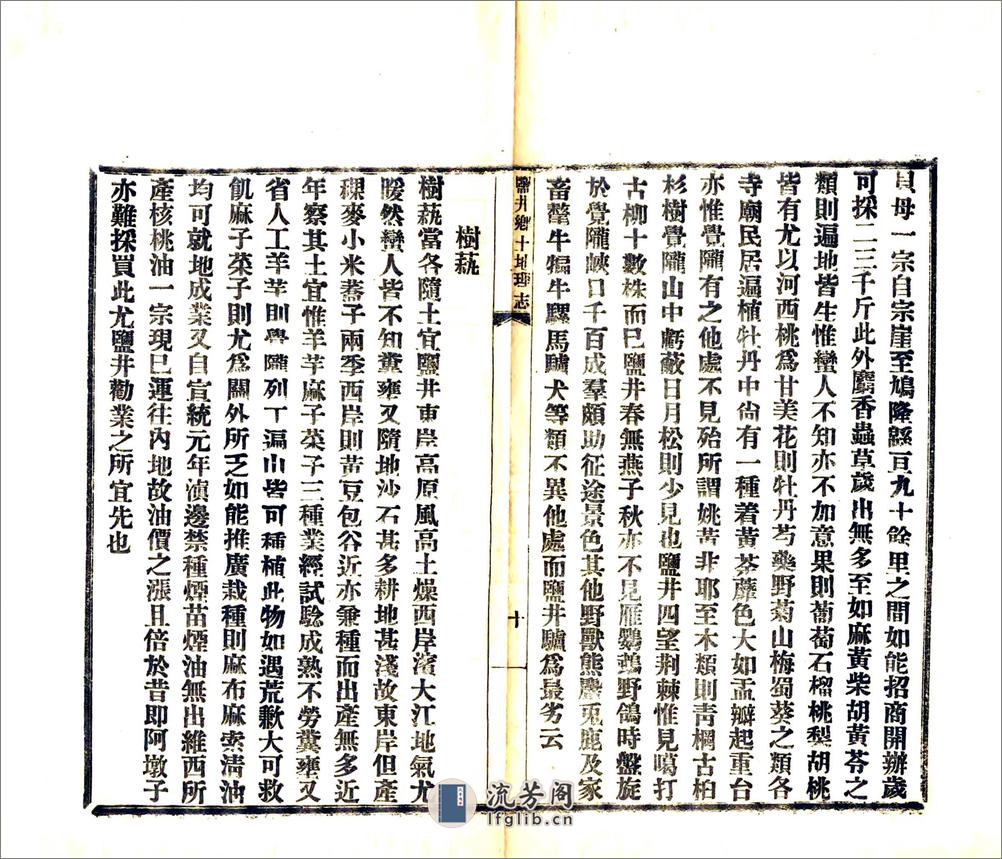 貝母一宗自宗崖至鳩隆緜亘九十餘里之間如能招商開辦歲
可採二三千斤此外麝香蟲草歲出無多至如麻黃柴胡黃芩之
類則遍地皆生惟蠻人不知亦不加意果則葡萄石榴桃梨胡桃
皆有尤以河西桃爲甘美花則牡丹芍藥野菊山梅蜀葵之類各
寺廟民居遍植牡丹中尙有一種着黃荼蘼色大如盂瓣起重台
亦惟覺隴有之他處不見殆所謂姚黃非耶至木類則青棡古柏
杉樹覺隴山中虧蔽日月松則少見也鹽井四望荆棘惟見噶打
古柳十數株而已鹽井春無燕子秋亦不見雁鸚鵡野鴿時盤旋
於覺隴峽口千百成羣頗助征途景色其他野獸熊麞兎鹿及家
畜犛牛犏牛騾馬驢犬等類不異他處而鹽井驢爲最劣云
鹽井鄉土地理志
十
樹蓺
樹蓺當各隨土宜鹽井東岸高原風高土燥西岸濱大江地氣尤
暖然蠻人皆不知糞壅又隨地沙石甚多耕地甚淺故東岸但產
稞麥小米蕎子兩季西岸則黃豆包谷近亦兼種而出產無多近
年察其土宜惟羊芋麻子菜子三種業經試驗成熟不勞糞壅又
省人工羊芋則覺隴列丁遍山皆可種植此物如遇荒歉大可救
飢麻子菜子則尤爲關外所乏如能推廣栽種則麻布麻索淸油
均可就地成業又自宣統元年滇邊禁種煙苗煙油無出維西所
產核桃油一宗現已運往內地故油價之漲且倍於昔即阿墩子
亦難採買此尤鹽井勸業之所宜先也
流芳阁
lfglib.cn